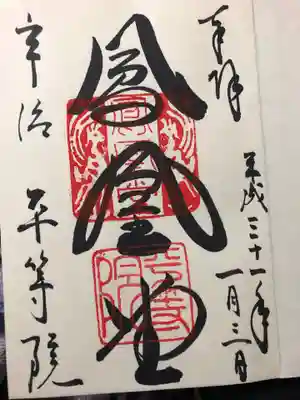 奉拝
平成三十一年
一月三日
鳳凰堂
宇治 平等院